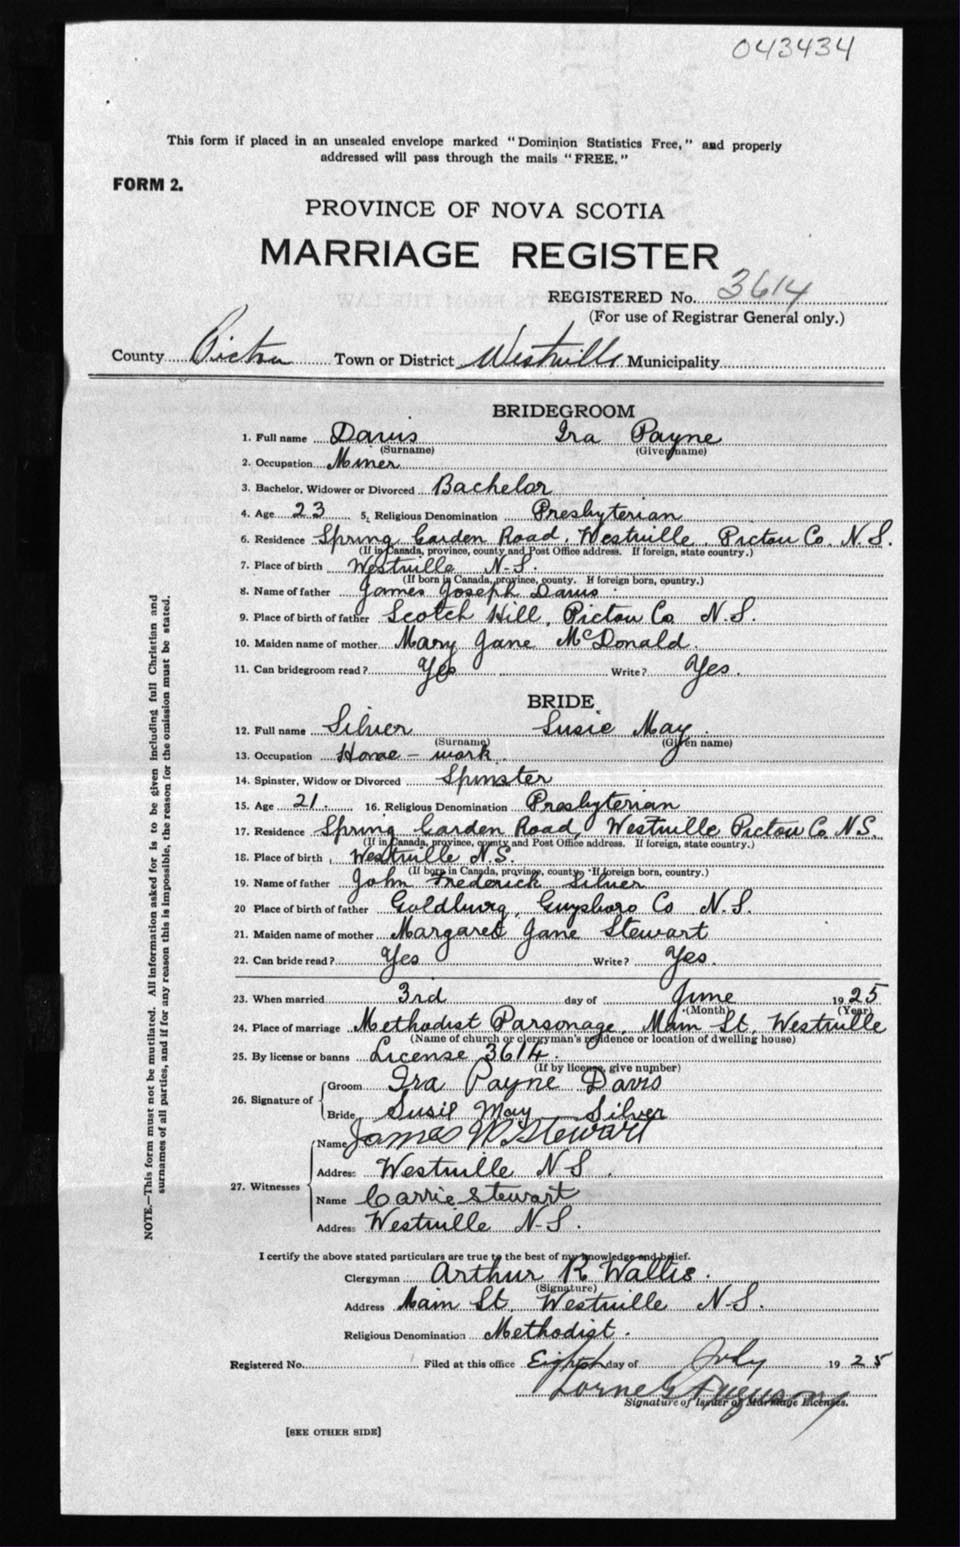 043434
This form if placed in an unsealed envelope marked "Dominion Statistics Free," and properly
addressed will pass through the mails "FREE."
FORM 2.
PROVINCE OF NOVA SCOTIA
MARRIAGE REGISTER
REGISTERED No. 3614
(For use of Registrar General only.)
County Pictou Town or District Westville Municipality
BRIDEGROOM
1. Full name Davis Ira Payne
(Surname) (Given name)
2. Occupation Miner
3. Bachelor, Widower or Divorced Bachelor
4. Age 23 5. Religious Denomination Presbyterian
6. Residence Spring Garden Road, Westville, Pictou Co. N.S.
(If in Canada, province, county and Post Office address. If foreign, state country.)
7. Place of birth Westville N-S.
(If born in Canada, province, county. If foreign born, country.)
8. Name of father James Joseph Davis
9. Place of birth of father Scotch Hill, Pictou Co N.S.
10. Maiden name of mother Mary Jane McDonald.
11. Can bridegroom read? Yes Write? Yes.
BRIDE
12. Full name Silver Susie May.
(Surname) (Given name)
13. Occupation Home-work.
14. Spinster, Widow or Divorced Spinster
15. Age 21. 16. Religious Denomination Presbyterian
17. Residence Spring Garden Road, Westville Pictou Co N.S.
(If in Canada, province, county and Post Office address. If foreign, state country.)
18. Place of birth Westville N.S.
(If born in Canada, province, county. If foreign born, country.)
19. Name of father John Frederick Silver
20 Place of birth of father Goldburg, Guysboro Co N.S.
21. Maiden name of mother Margaret Jane Stewart
22. Can bride read? Yes Write? Yes.
23. When married 3rd day of June 1925
(Month) (Year)
24. Place of marriage Methodist Parsonage, Main St, Westville
(Name of church or clergyman's residence or location of dwelling house)
25. By license or banns License 3614.
(If by license, give number)
26. Signature of
Groom Ira Payne Davis
Bride Susie May Silver
27. Witnesses
Name James W Stewart
Address Westville N-S.
Name Carrie Stewart
Address Westville N-S.
I certify the above stated particulars are true to the best of my knowledge and belief.
Clergyman Arthur R Wallis.
(Signature)
Address Main St, Westville N-S.
Religious Denomination Methodist.
Registered No. Filed at this office Eighth day of July 1925
Lorne G Ferguson
Signature of Issuer of Marriage Licenses.
[SEE OTHER SIDE]
NOTE.—This form must not be mutilated. All information asked for is to be given including full Christian and
surnames of all parties, and if for any reason this is impossible, the reason for the omission must be stated.